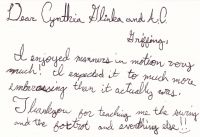 Dear Cynthia Glinka and A.C.
Griffing,
I enjoyed manners in motion very
much! I expected it to much more
embarrassing than it actually was.
Thankyou for teaching me the swing
and the foxtrot and everything else!!